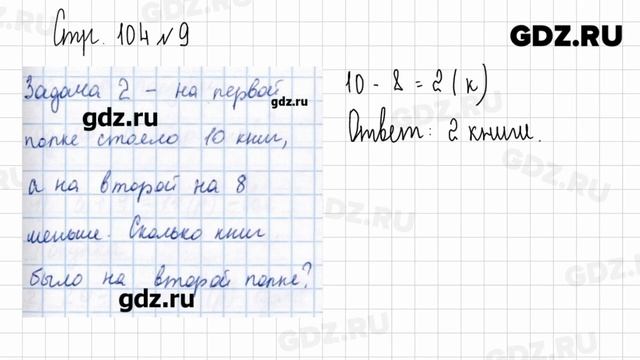 Стр. 104 № 9
GDZ.RU
Задача 2 - на первой
gdz.ru
полке стояло 10 книг,
а на второй на 8
меньше. Сколько книг
было на второй полке?
gdz.ru
10 - 8 = 2 (к)
Ответ: 2 книги.
GDZ.RU
GDZ.RU
GDZ.RU